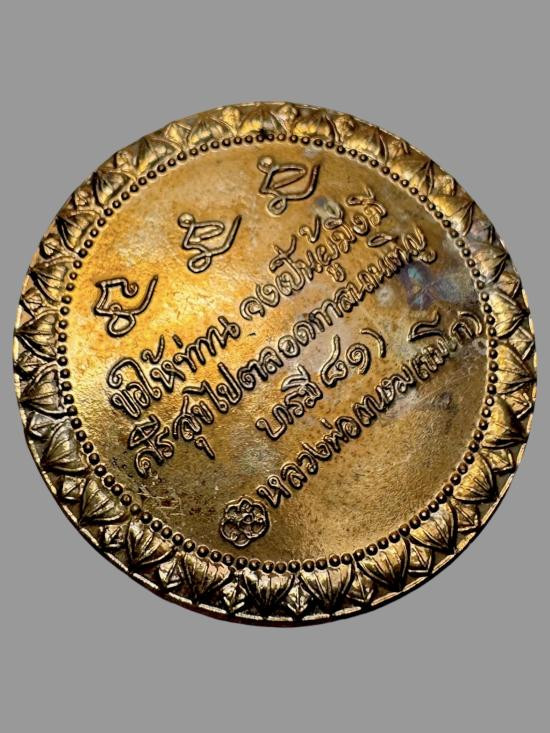 ขอให้ท่าน จงเป็นผู้มั่งมี
ศรีสุขไปตลอดกาลนานเทิญ
บารมี ๘๑)
หลวงพ่อเกษม เขมโก)